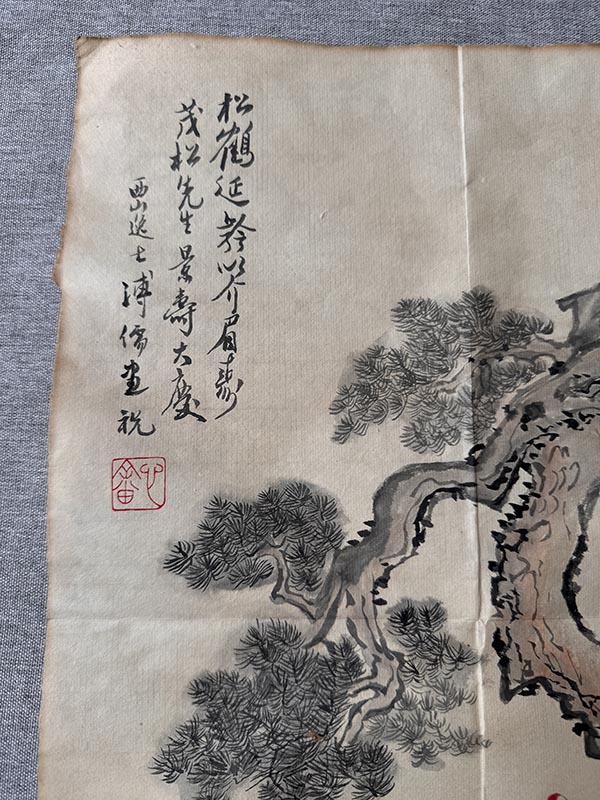 松鶴延齡以介眉壽
茂松先生景壽大慶
西山逸士溥儒畫祝
心畬